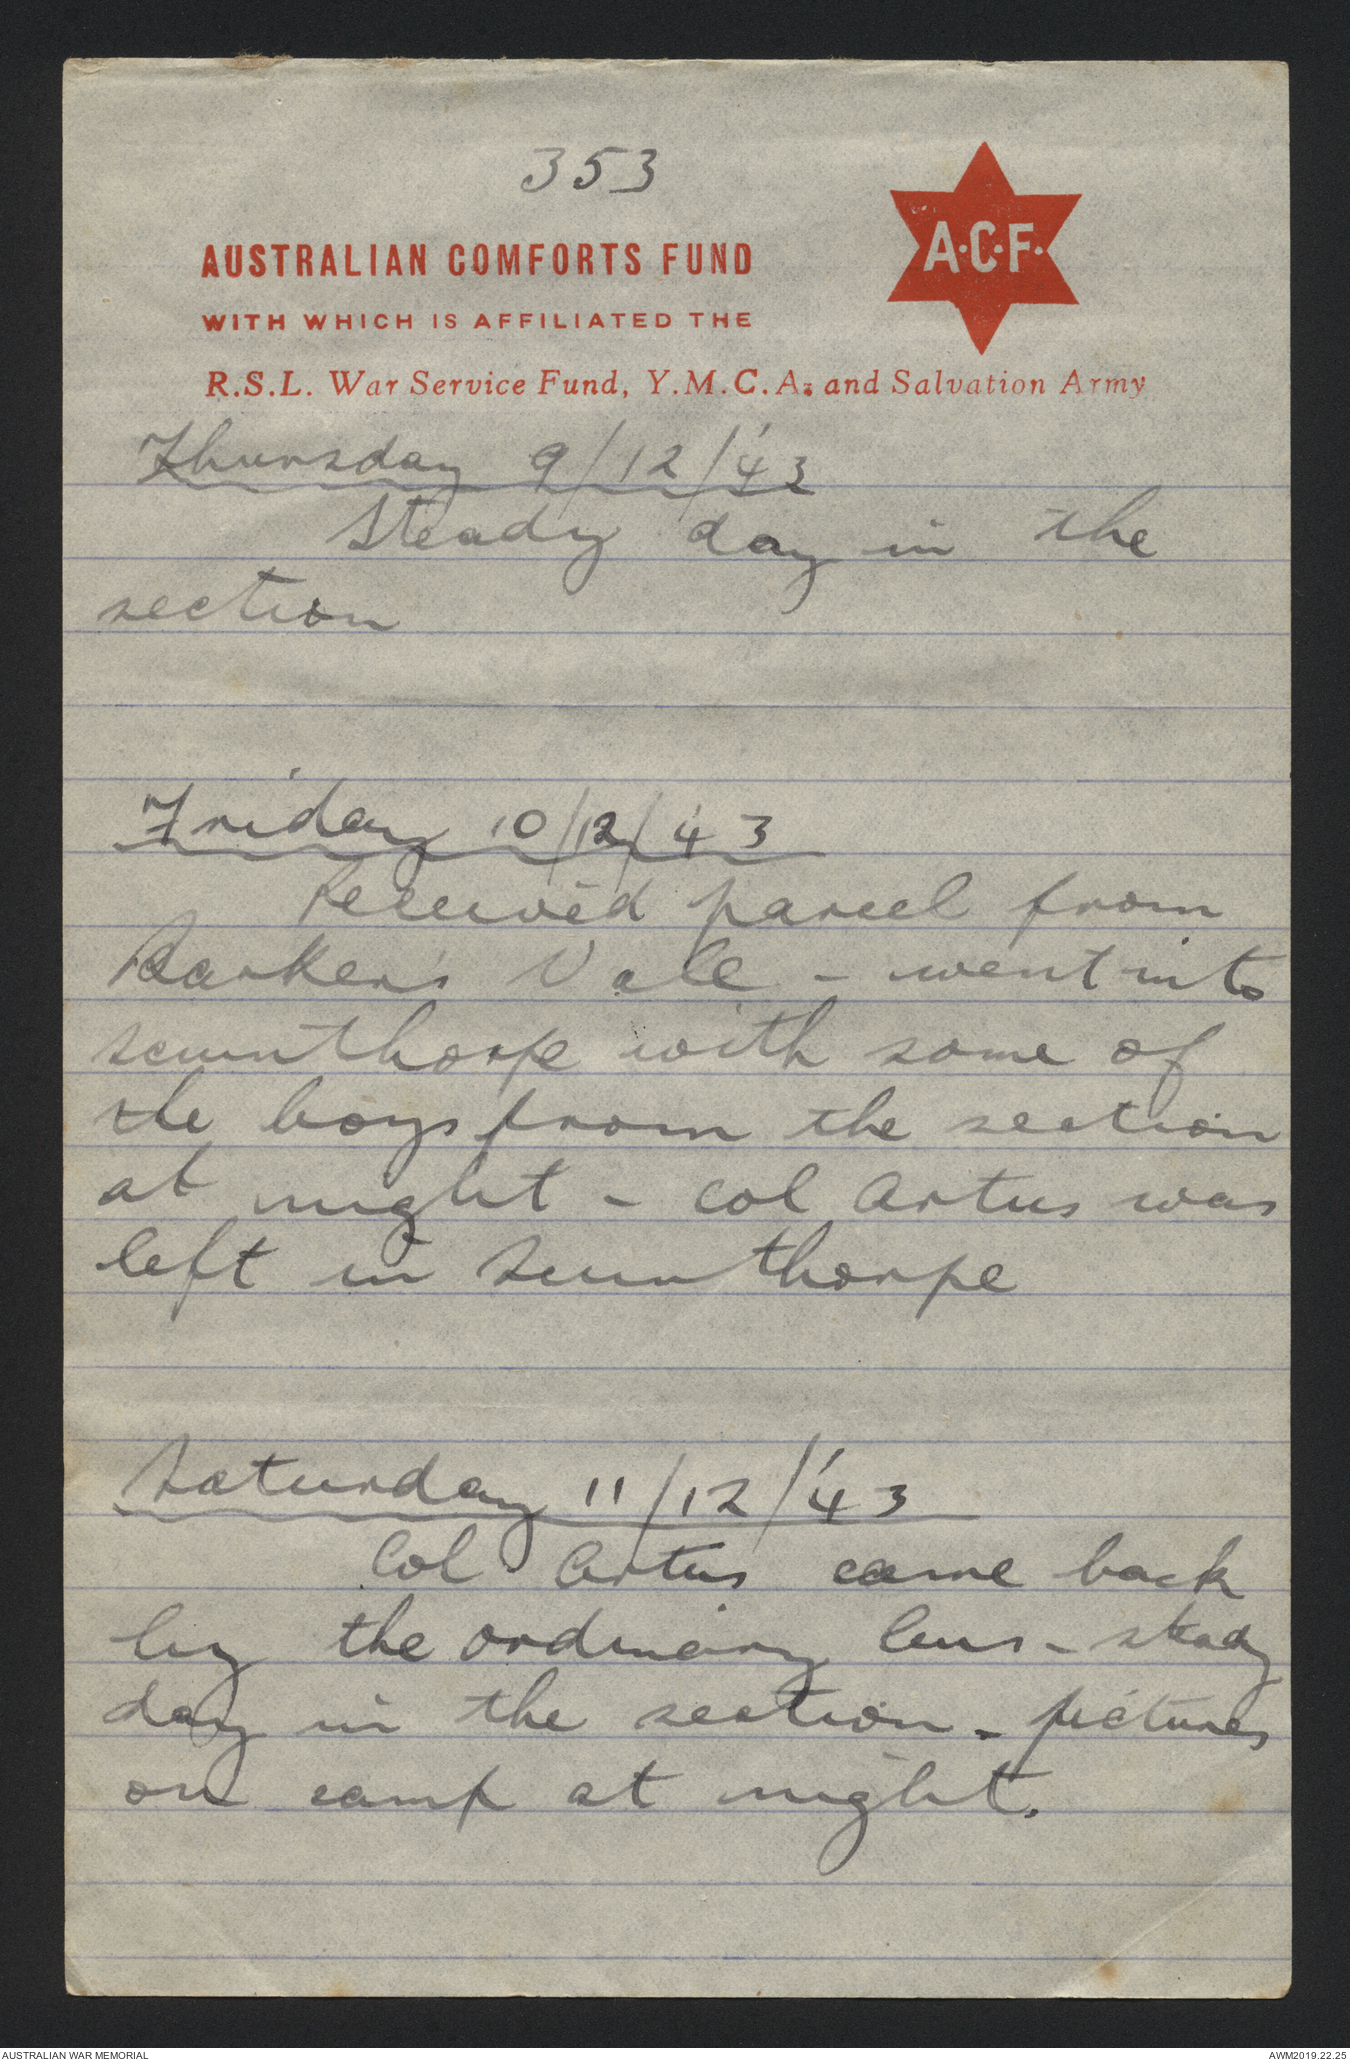 353
AUSTRALIAN COMFORTS FUND
WITH WHICH IS AFFILIATED THE
R.S.L. War Service Fund, Y.M.C.A. and Salvation Army
A.C.F.
Thursday 9/12/'43
Steady day in the
section
Friday 10/12/'43
Received parcel from
Barker's Vale - went into
scunthorpe with some of
the boys from the section
at night - Col Artus was
left in Scunthorpe
Saturday 11/12/'43
Col Artus came back
by the ordinary bus - steady
day in the section - pictures
on camp at night.
AUSTRALIAN WAR MEMORIAL
AWM2019.22.25